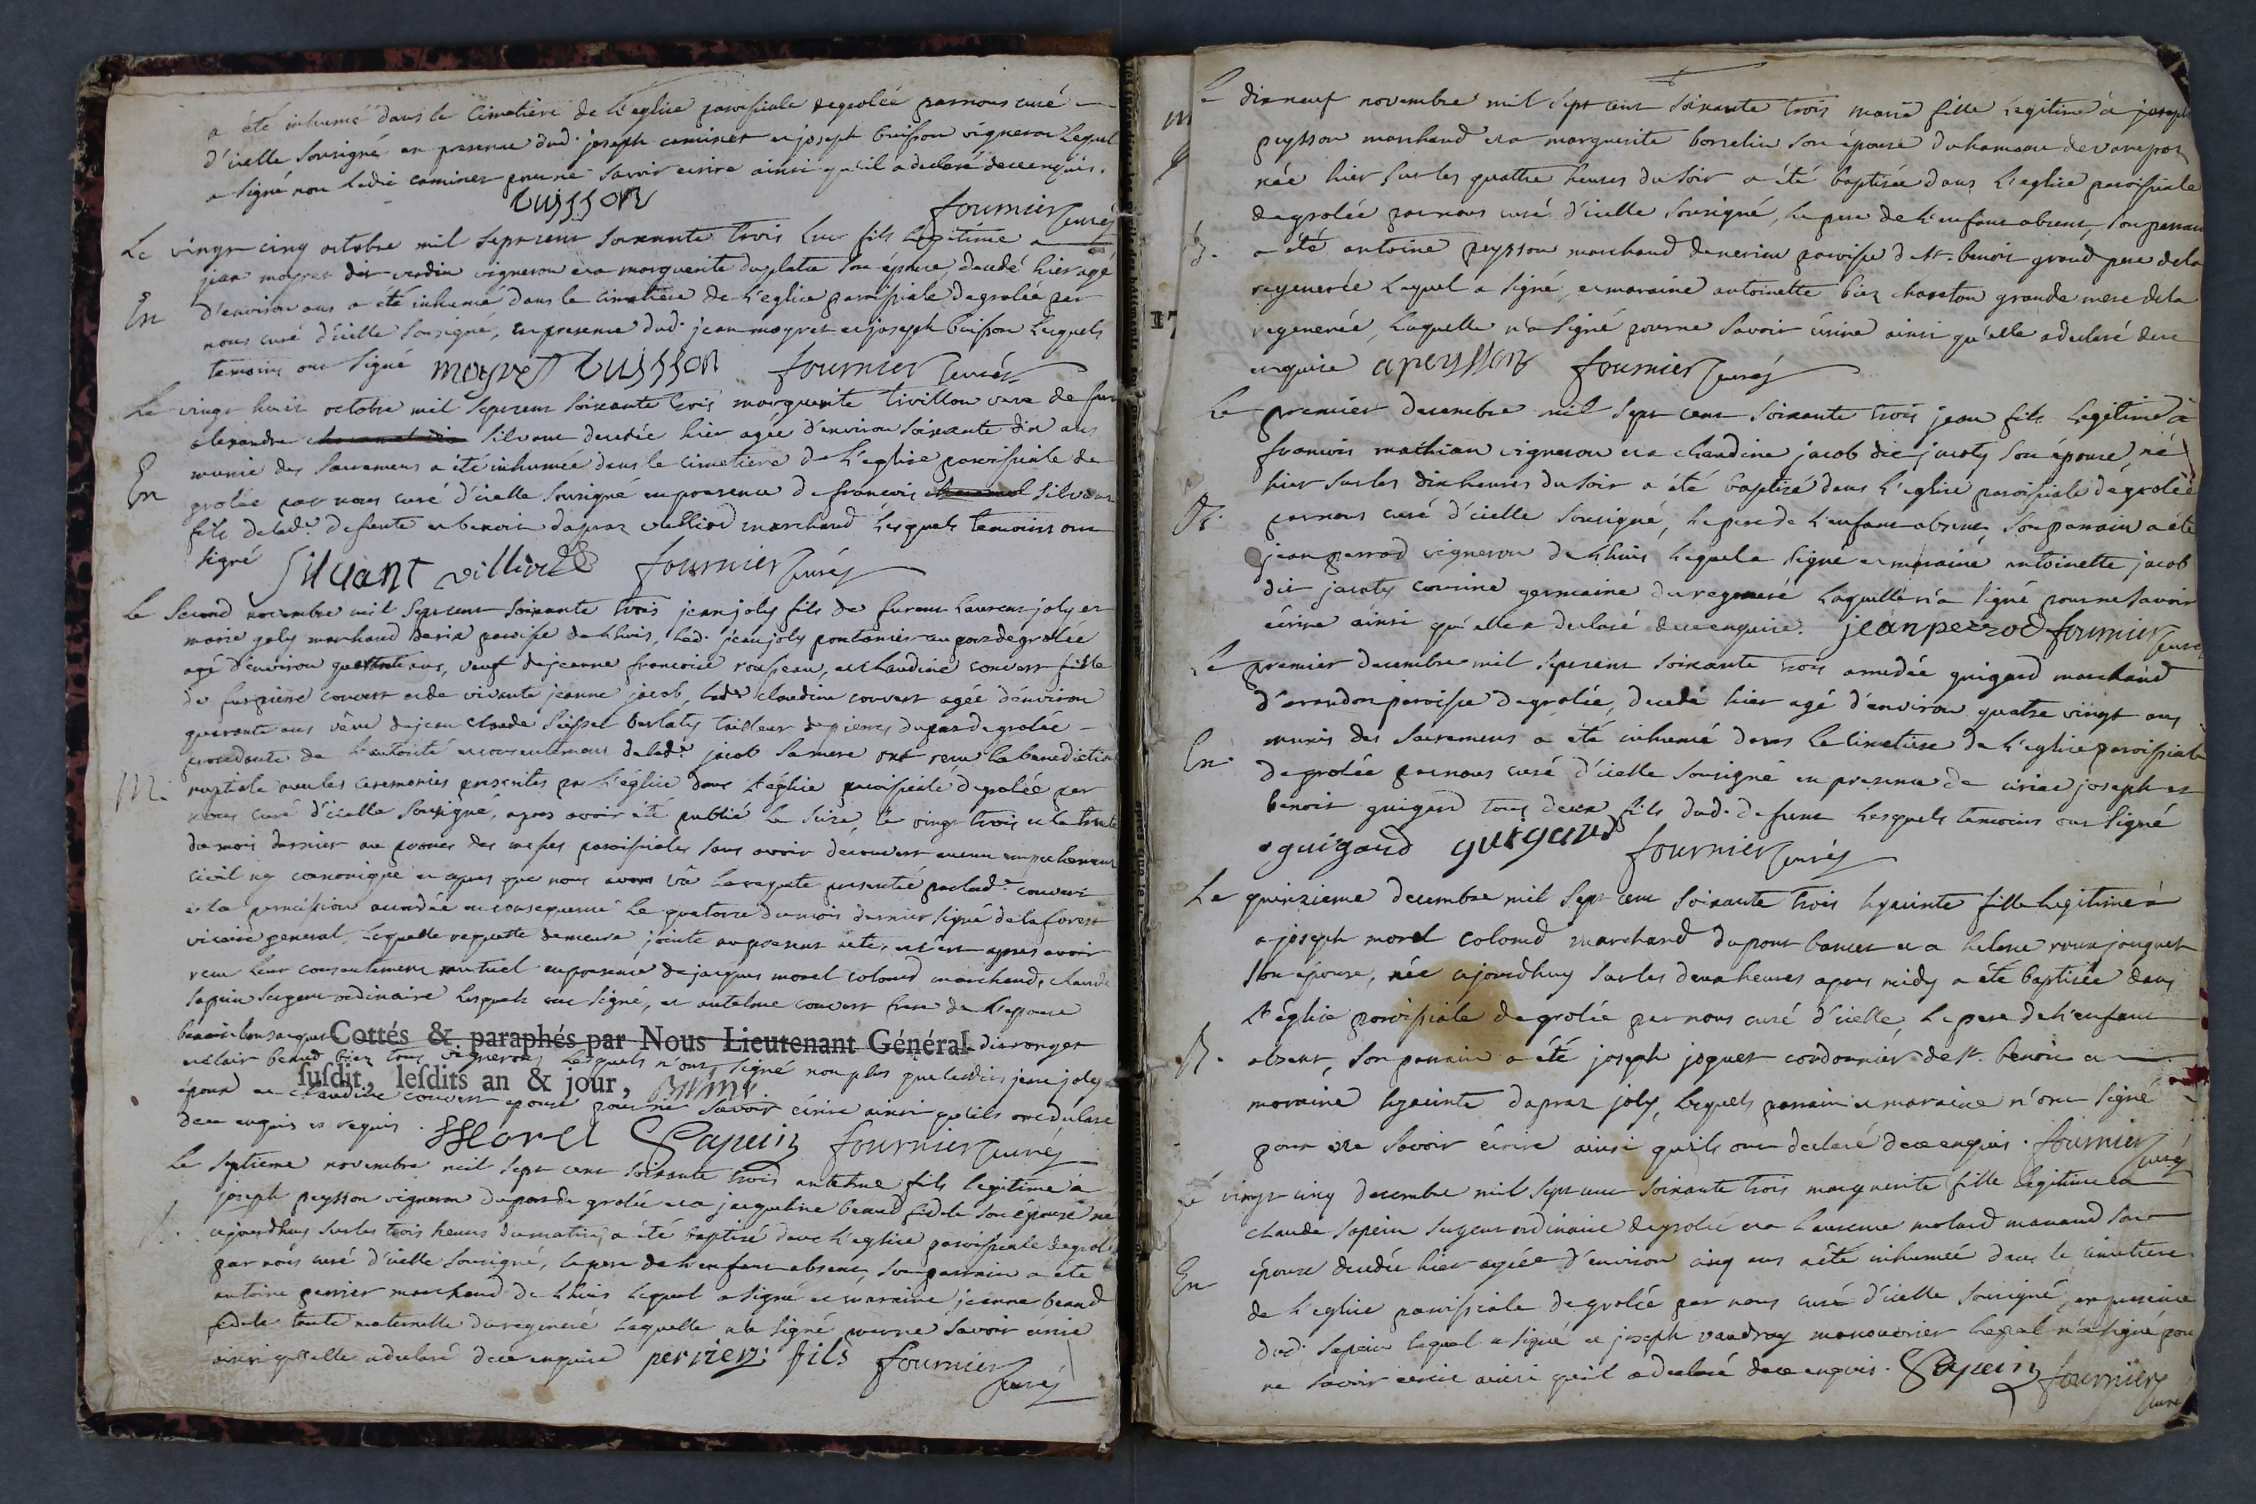 a été inhumé dans le Cimetiere de l'eglise paroissiale de grolée par nous curé
d'icelle Sousigné en presence dud. joseph caminet et joseph buisson vigneron lequel
a signé non ledit caminet pour ne Savoir ecrire ainsi qu'il a declaré de ce enquis.
buisson
fournier curé
Le vingt cinq octobre mil Sept cent Soixante trois Luc fils legitime a
jean moyret dit verdin vigneron et a marguerite duplatre Son épouse, decedé hier agé
En
d'environ ans a été inhumé dans le cimetiere de l'eglise paroissiale de grolée par
nous curé d'icelle Sousigné, en presence dud. jean moyret et joseph buisson lesquels
temoins ont Signé moyret buisson fournier curé
Le vingt huit octobre mil Sept cent Soixante trois marguerite trivillon veve de feu
alexandre Silvant decedée hier agée d'environ Soixante dix ans
munie des Sacremens a été inhumée dans le cimetiere de l'eglise paroissiale de
En
grolée par nous curé d'icelle Sousigné en presence de francois Silvant
fils de lad.e defunte et benoit dapraz marchand lesquels temoins ont
signé Silvant villiod fournier curé
Le Second novembre mil Sept cent Soixante trois jean joly fils de laurent joly et
marie joly marchand paroisse de Lhuis, led. jean joly pontanier au port de grolée
agé d'environ quarante ans, veuf de jeanne francoise rousseau, et claudine convert fille
de feu pierre convert et de vivante jeanne jacob, lad.e claudine convert agée d'environ
quarante ans vêve de jean claude tailleur de pierres du port de grolée
procedante de l'autorité et consentement de lad.e jacob Sa mere ont recu la benediction
M.
nuptiale avec les ceremonies prescrites par l'église dans l'église paroissiale de grolée par
nous curé d'icelle Sousigné, apres avoir été publié le Seize, le vingt trois et le trente
du mois dernier aux prones des messes paroissiales Sans avoir decouvert aucun empechement
civil ny canonique et apres que nous avons vû la requete presentée par lad.e convert
et la permission accordée en consequence le quatorze du mois dernier signé de la forest
vicaire general, laquelle requette demeure jointe au present acte, et c'est apres avoir
recu leur consentement mutuel en presence de jacques morel colomd marchand, claude
Sapein Sergent ordinaire lesquels ont Signé, et antelme convert frere de l'epouse
Cottés & paraphés par Nous Lieutenant Général
et clair beaud tous vignerons lesquels n'ont Signé non plus que lesdits jean joly
ſuſdit, leſdits an & jour,
époux et claudine convert epouse pour ne Savoir écrire ainsi qu'ils ont déclaré
de ce enquis et requis. Morel Sapein fournier curé
Le Septieme novembre mil Sept cent Soixante trois antelme fils legitime à
joseph peysson vigneron du port de grolée et a jacqueline beaud fidele Son epouse né
ajourdhuy Sur les trois heures du matin, a été baptisé dans l'eglise paroissiale de grolée
par nous curé d'icelle Sousigné, le pere de l'enfant absent, Son parrain a été
antoine perrier marchand de Lhuis lequel a Signé et maraine jeanne beaud
fidele tante maternelle du regeneré laquelle n'a Signé pour ne Savoir écrire
ainsi qu'elle a declaré de ce enquise perrier fils fournier curé
Le dixneuf novembre mil Sept cent Soixante trois marie fille legitime à joseph
peysson marchand et a marguerite borrelin Son épouse du hameau de
née hier Sur les quattre heures du Soir a été baptisée dans l'eglise paroissiale
de grolée par nous curé d'icelle Sousigné, le pere de l'enfant absent, Son parrain
B.
a été antoine peysson marchand de nerieu paroisse de St. benoit grand pere de la
regenerée lequel a Signé, et maraine antoinette biez chareton grande mere de la
regenerée, laquelle n'a Signé pour ne Savoir écrire ainsi qu'elle a declaré de ce
enquise apeysson fournier curé
Le premier decembre mil Sept cent Soixante trois jean fils legitime à
francois mathian vigneron et a claudine jacob dit jacoty Son épouse, né
hier Sur les dix heures du Soir a été baptisé dans l'eglise paroissiale de grolée
B.
par nous curé d'icelle Sousigné, le pere de l'enfant absent Son parrain a été
jean perrod vigneron de Lhuis lequel a Signé et maraine antoinette jacob
dit jacoty cousine germaine du regeneré laquelle n'a Signé pour ne Savoir
écrire ainsi qu'elle a declaré de ce enquise. jean perrod fournier curé
Le premier decembre mil Sept cent Soixante trois amedée guigard marchand
d'arandon paroisse de grolée, decedé hier agé d'environ quatre vingt ans
munis des Sacremens a été inhumé dans le Cimetiere de l'eglise paroissiale
En.
de grolée par nous curé d'icelle Sousigné en presence de joseph et
benoit guigard tous deux fils dud. defunt lesquels temoins ont Signé
guigard guigard fournier curé
Le quinzieme decembre mil Sept cent Soixante trois hyacinte fille legitime à
a joseph morel colomd marchand du pont bancet et a helene roux jouguet
Son épouse, née ajourdhuy Sur les deux heures apres midy a été baptisée dans
l'église paroissiale de grolée par nous curé d'icelle, le pere de l'enfant
B.
absent, Son parrain a été joseph joguet cordonnier de St. benoit et
maraine hyacinte dapraz joly, lesquels parrain et maraine n'ont Signé
pour ne Savoir écrire ainsi qu'ils ont declaré de ce enquis. fournier curé
Le vingt cinq decembre mil Sept cent Soixante trois marguerite fille legitime a
claude Sapein Sergent ordinaire de grolée et a laurence molard manaud Son
En
épouse decedée hier agée d'environ cinq ans a été inhumée dans le cimetiere
de l'eglise paroissiale de grolée par nous curé d'icelle Sousigné, en presence
dud. Sapein lequel a Signé et joseph vaudray manouvrier lequel n'a Signé pour
ne Savoir écrire ainsi qu'il a declaré de ce enquis. Sapein fournier curé